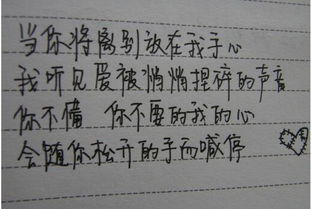 当你将离别放在我手心
我听见爱被悄悄捏碎的声音
你不备 你不要的我的心
会随你松开的手而喊停